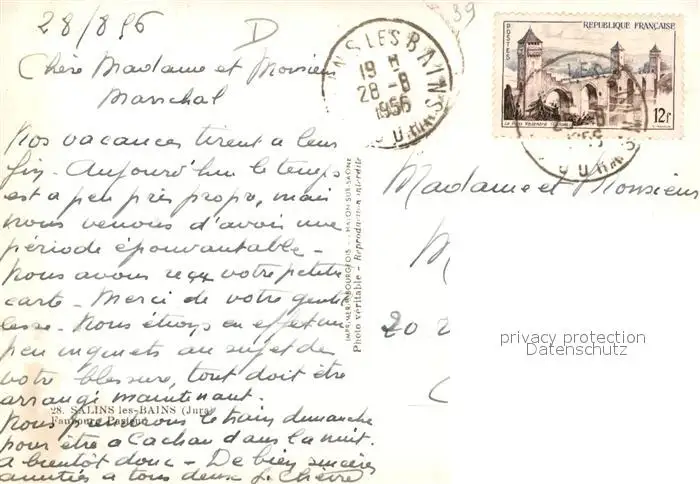 28/8 56
D
39
Chère Madame et Monsieur
Marichal
Nos vacances tirent a leur
fin - Aujourd'hui le temps
est a peu près propre, mais
nous venons d'avoir une
période épouvantable -
Nous avons reçu votre petite
carte - Merci de votre gentil
lesse - Nous étions en effet un
peu inquiets au sujet de
votre blessure, tout doit être
arrangé maintenant.
28. SALINS les-BAINS (Jura)
Faubourg Pasteur
Nous prendrons le train dimanche
pour être a Cachan dans la nuit.
a bientôt donc - De bien sincères
amitiés a tous deux J. Chèvre
IMPRIMERIE BOURGEOIS - CHALON-SUR-SAÔNE
Photo véritable - Reproduction interdite
NS LES BAINS
19 H
28 - 8
1956
JURA
RÉPUBLIQUE FRANÇAISE
POSTES
Le Pont Valentré
12f
Madame et Monsieur
M
20
privacy protection
Datenschutz